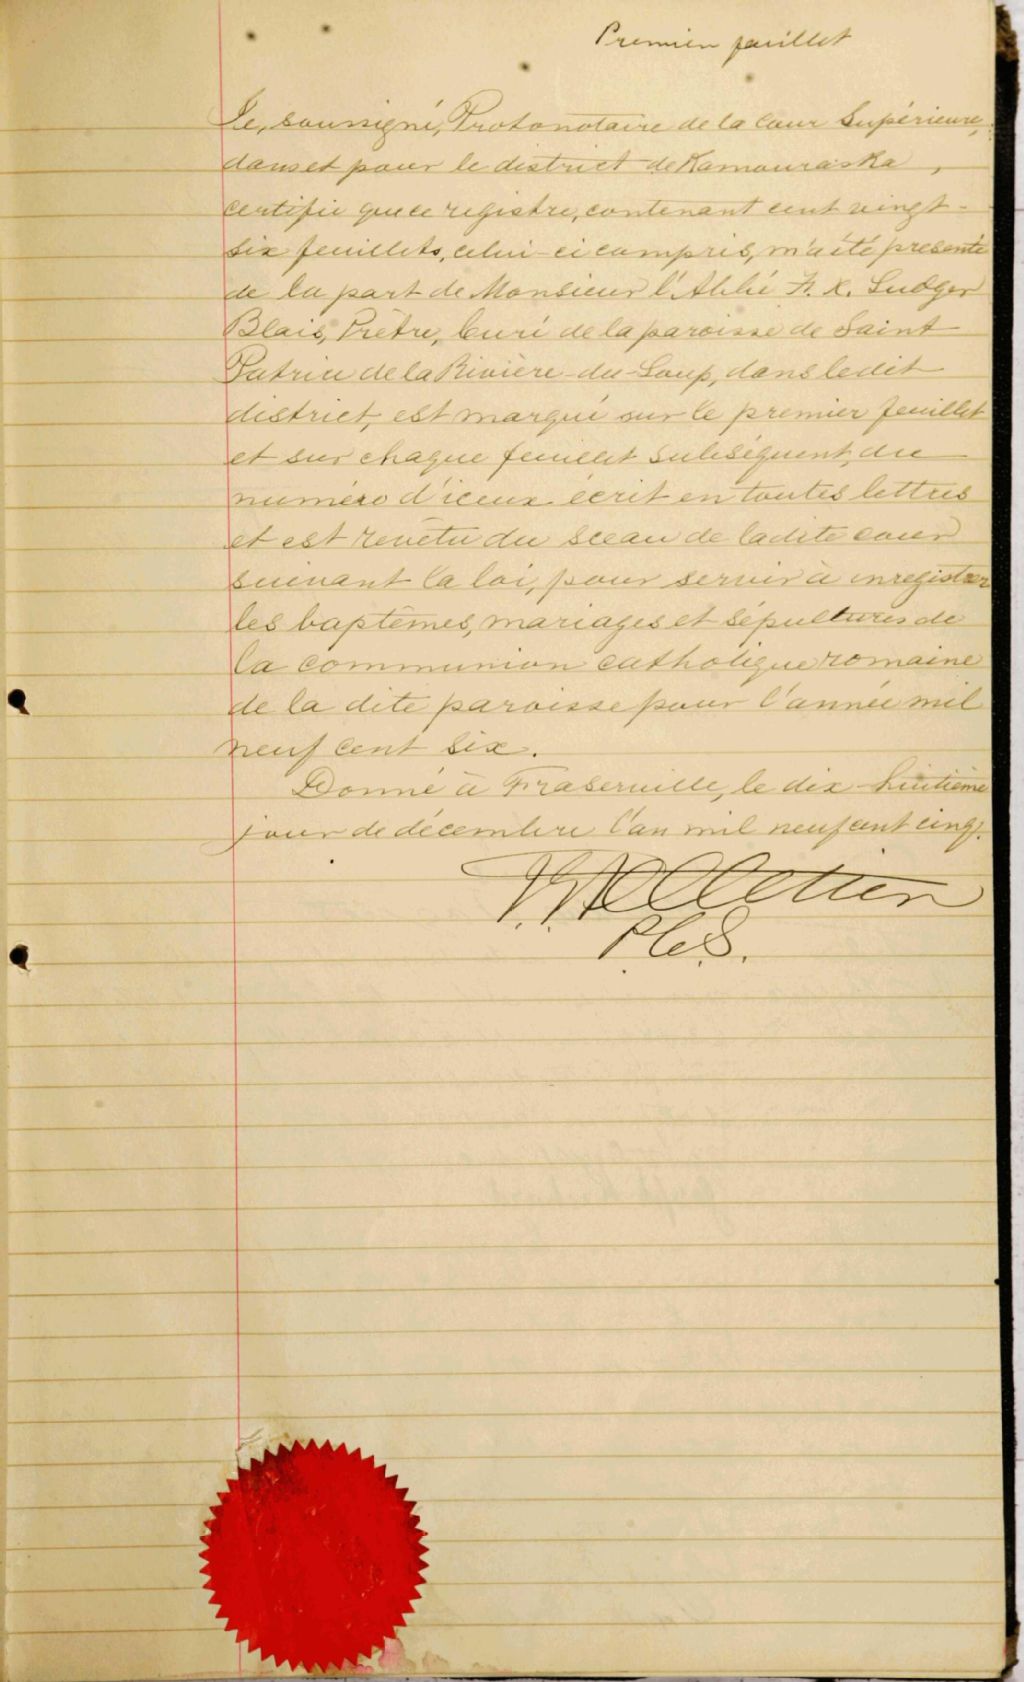 Premier feuillet
Je, soussigné, Protonotaire de la Cour Supérieure,
dans et pour le district de Kamouraska,
certifie que ce registre, contenant cent vingt-
six feuillets, celui-ci compris, m'a été présenté
de la part de Monsieur l'Abbé F. X. Ludger
Blais, Prêtre, Curé de la paroisse de Saint
Patrice de la Rivière-du-Loup, dans ledit
district, est marqué sur le premier feuillet
et sur chaque feuillet subséquent, du
numéro d'iceux écrit en toutes lettres
et est revêtu du sceau de ladite cour
suivant la loi, pour servir à enregistrer
les baptêmes, mariages et sépultures de
la communion catholique romaine
de la dite paroisse pour l'année mil
neuf cent six.
Donné à Fraserville, le dix-huitième
jour de décembre l'an mil neuf cent cinq.
Pelletier
P.C.S.